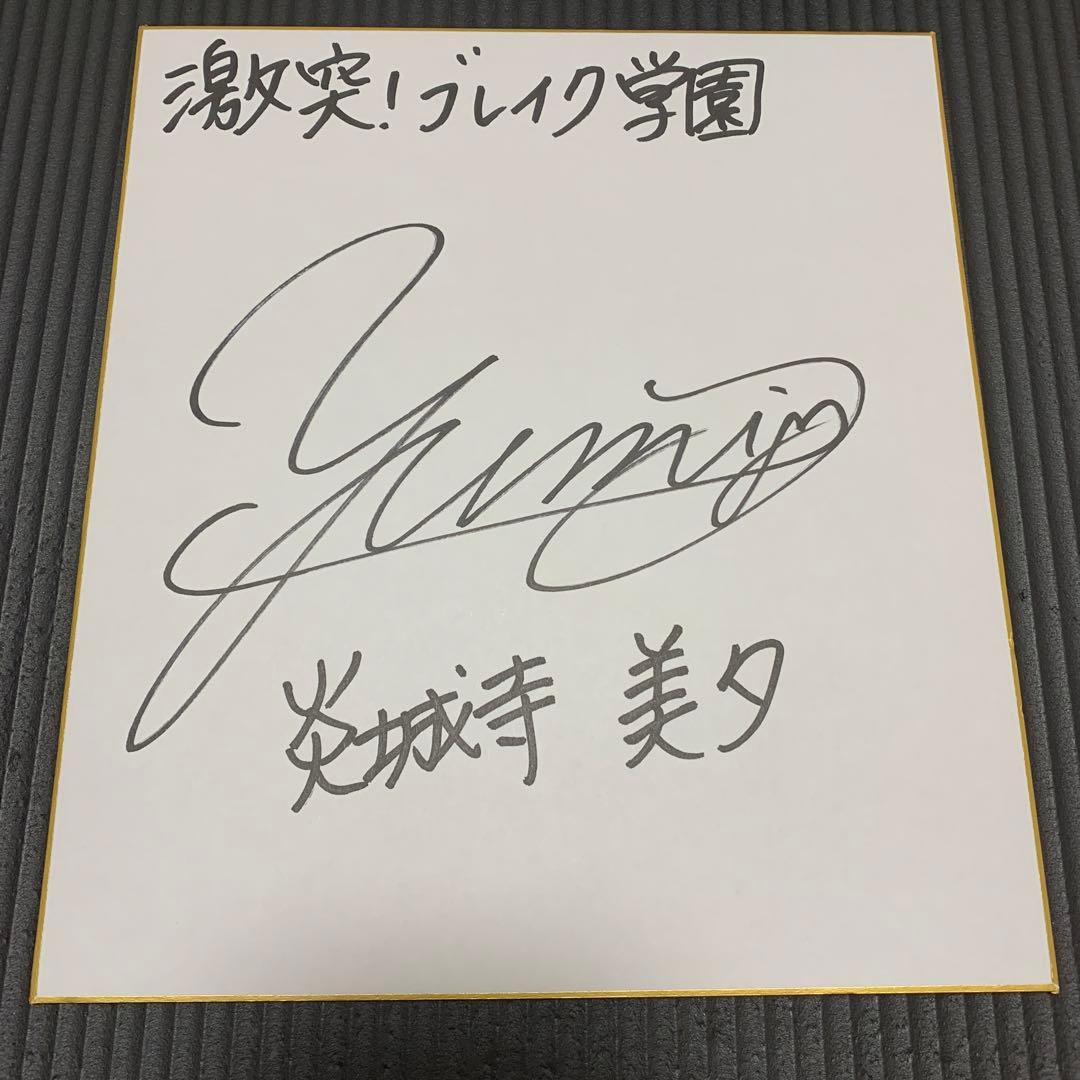 激突!ブレイク学園
yumi
炎城寺 美夕